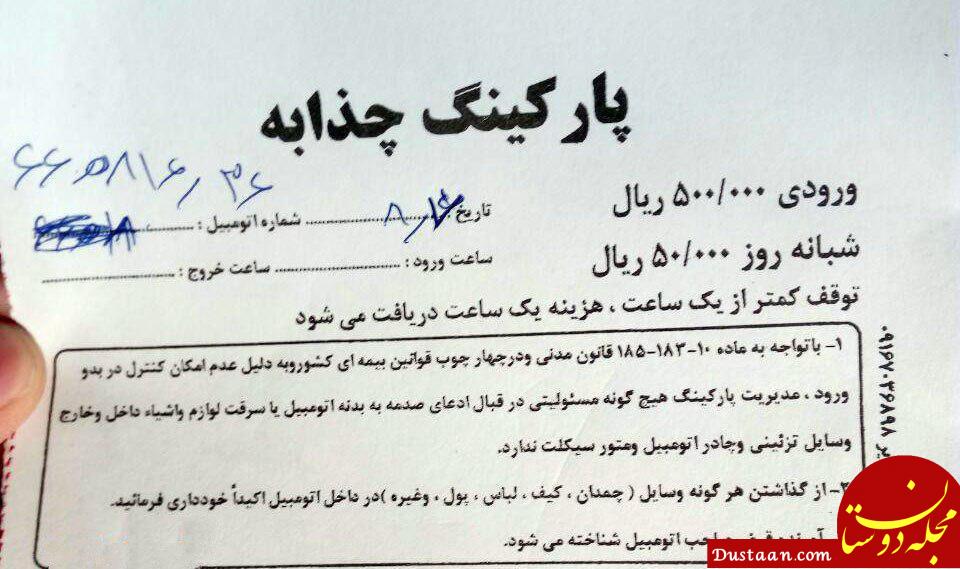 پارکینگ چذابه
ورودی ۵۰۰/۰۰۰ ریال
شبانه روز ۵۰/۰۰۰ ریال
توقف کمتر از یک ساعت ، هزینه یک ساعت دریافت می شود
تاریخ : ........ شماره اتومبیل : ........
ساعت ورود : ........ ساعت خروج : ........
۱- باتواجه به ماده ۱۰-۱۸۳-۱۸۵ قانون مدنی ودرچهار چوب قوانین بیمه ای کشوروبه دلیل عدم امکان کنترل در بدو
ورود ، مدیریت پارکینگ هیچ گونه مسئولیتی در قبال ادعای صدمه به بدنه اتومبیل یا سرقت لوازم واشیاء داخل وخارج
وسایل تزئینی وچادر اتومبیل ومتور سیکلت ندارد.
۲- از گذاشتن هر گونه وسایل ( چمدان ، کیف ، لباس ، پول ، وغیره )در داخل اتومبیل اکیداً خودداری فرمائید.
اتومبیل شناخته می شود.
۰۹۱۶۷۰۳۶۸۹۸
مجله دوستان
Dustaan.com